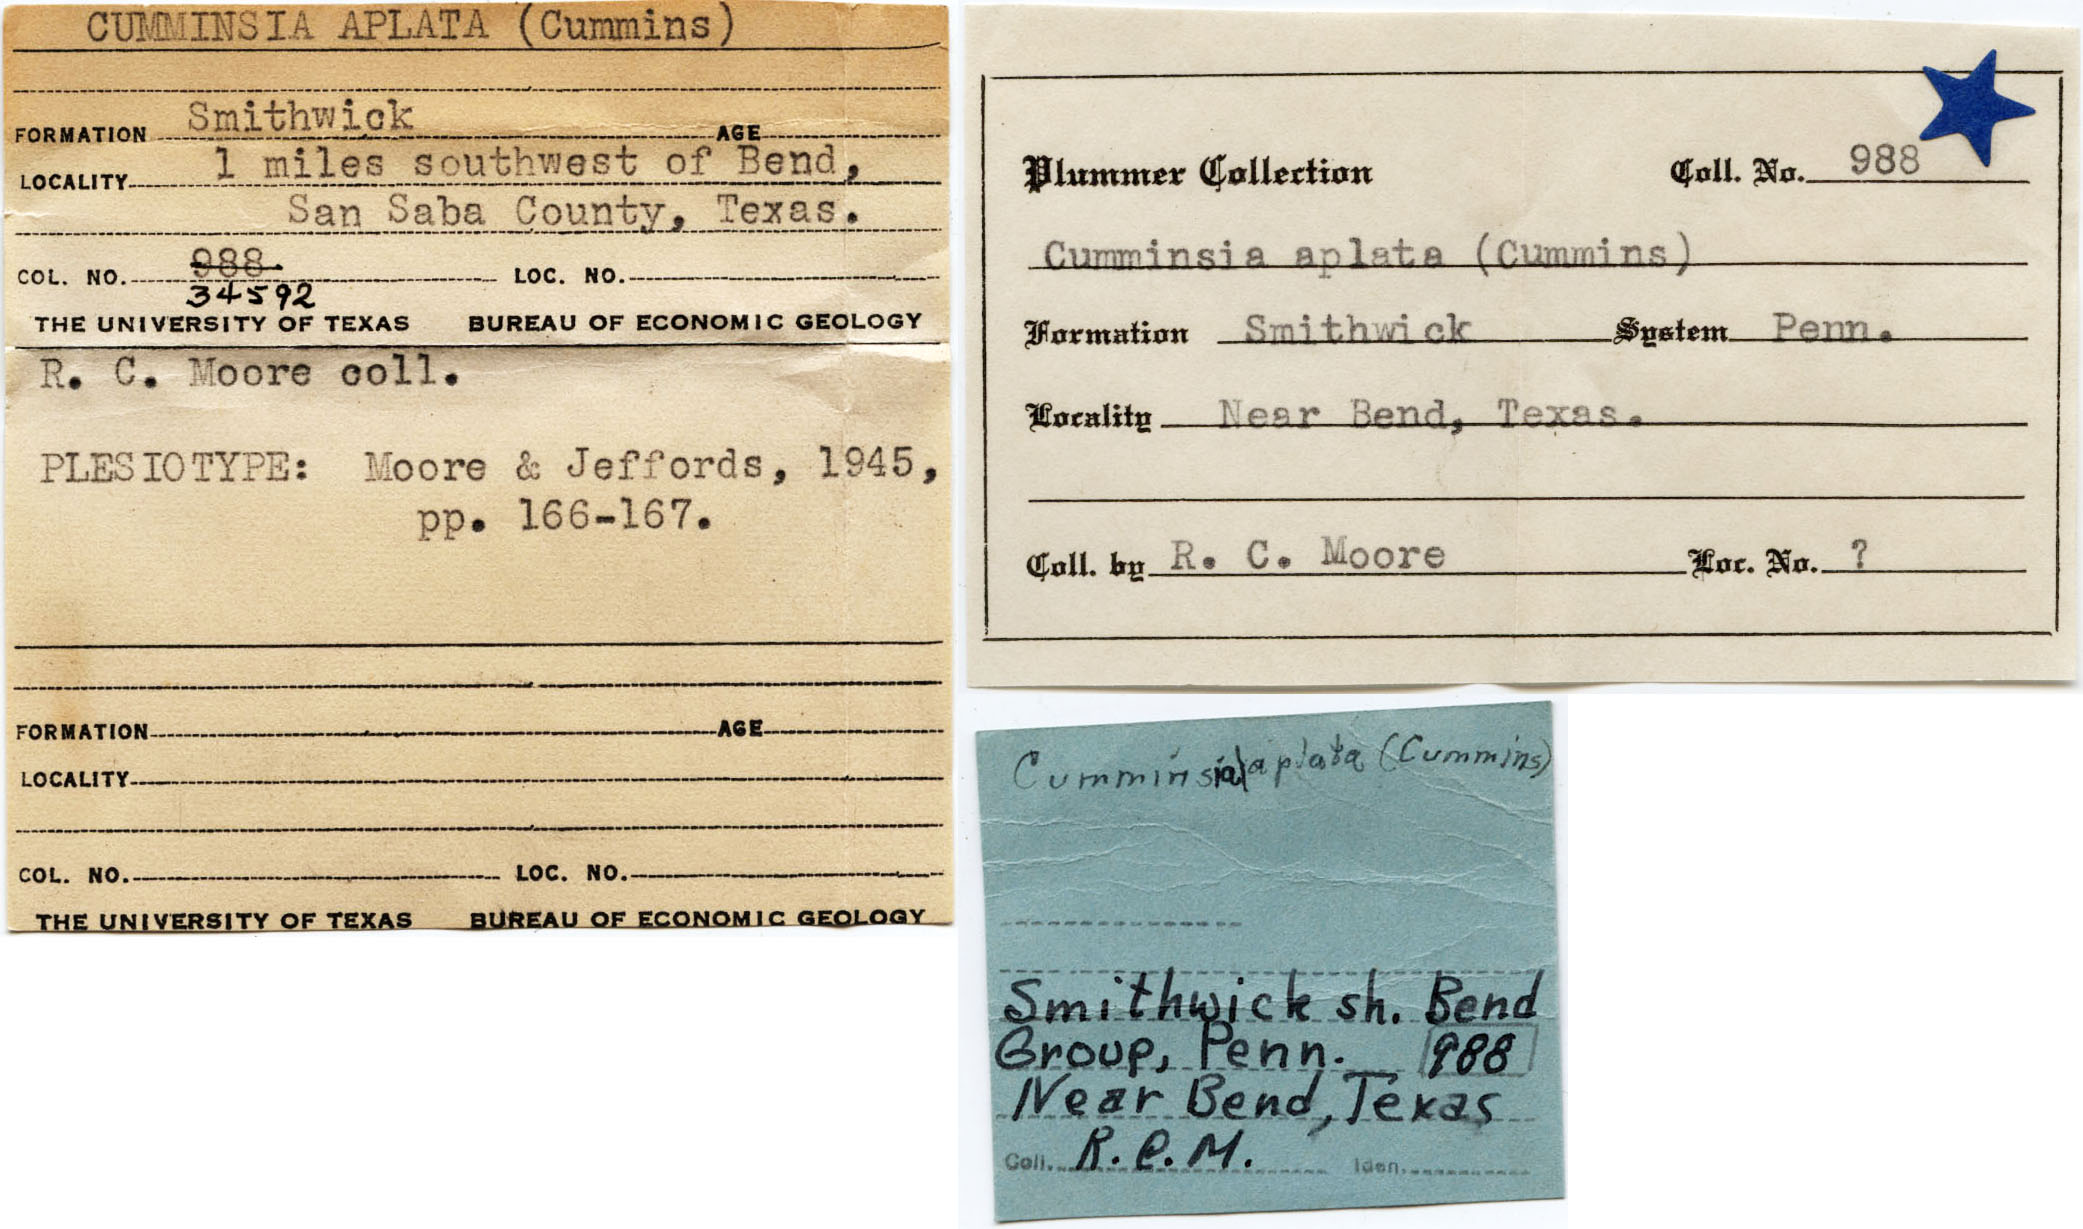 CUMMINSIA APLATA (Cummins)
FORMATION Smithwick AGE
LOCALITY 1 miles southwest of Bend,
San Saba County, Texas.
COL. NO. 988 LOC. NO.
34592
THE UNIVERSITY OF TEXAS BUREAU OF ECONOMIC GEOLOGY
R. C. Moore coll.
PLESIOTYPE: Moore & Jeffords, 1945,
pp. 166-167.
FORMATION AGE
LOCALITY
COL. NO. LOC. NO.
THE UNIVERSITY OF TEXAS BUREAU OF ECONOMIC GEOLOGY
Plummer Collection Coll. No. 988
Cumminsia aplata (Cummins)
Formation Smithwick System Penn.
Locality Near Bend, Texas.
Coll. by R. C. Moore Loc. No. ?
Cumminsia aplata (Cummins)
Smithwick sh. Bend
Group, Penn. 988
Near Bend, Texas
Coll. R.C.M. Iden.